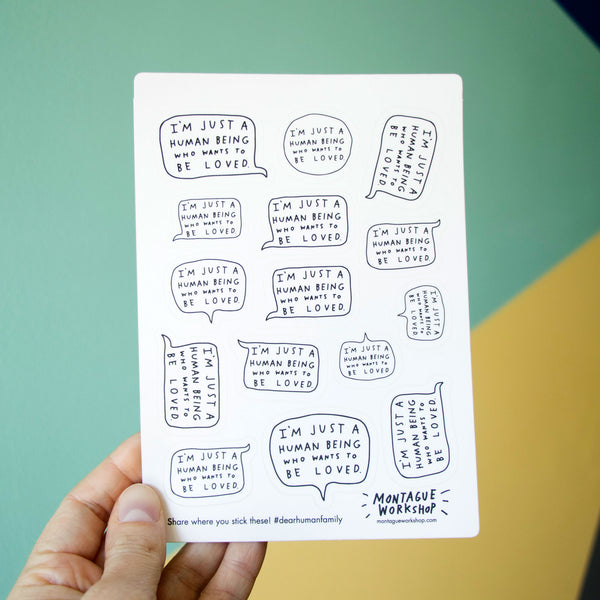 I'M JUST A
HUMAN BEING
WHO WANTS TO
BE LOVED.
I'M JUST A
HUMAN BEING
WHO WANTS TO
BE LOVED.
I'M JUST A
HUMAN BEING
WHO WANTS TO
BE LOVED.
I'M JUST A
HUMAN BEING
WHO WANTS TO
BE LOVED.
I'M JUST A
HUMAN BEING
WHO WANTS TO
BE LOVED.
I'M JUST A
HUMAN BEING
WHO WANTS TO
BE LOVED.
I'M JUST A
HUMAN BEING
WHO WANTS TO
BE LOVED.
I'M JUST A
HUMAN BEING
WHO WANTS TO
BE LOVED.
I'M JUST A
HUMAN BEING
WHO WANTS TO
BE LOVED.
I'M JUST A
HUMAN BEING
WHO WANTS TO
BE LOVED.
I'M JUST A
HUMAN BEING
WHO WANTS TO
BE LOVED.
I'M JUST A
HUMAN BEING
WHO WANTS TO
BE LOVED.
I'M JUST A
HUMAN BEING
WHO WANTS TO
BE LOVED.
I'M JUST A
HUMAN BEING
WHO WANTS TO
BE LOVED.
I'M JUST A
HUMAN BEING
WHO WANTS TO
BE LOVED.
Share where you stick these! #dearhumanfamily
MONTAGUE
WORKSHOP
montagueworkshop.com